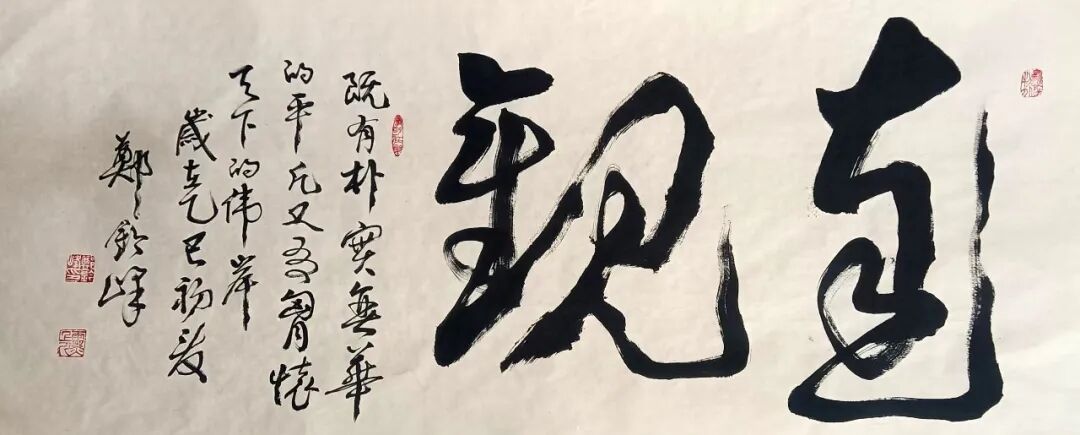 達觀
既有朴實無華
的平凡又有胸懷
天下的伟岸
歲在乙巳初夏
鄭鈴峰